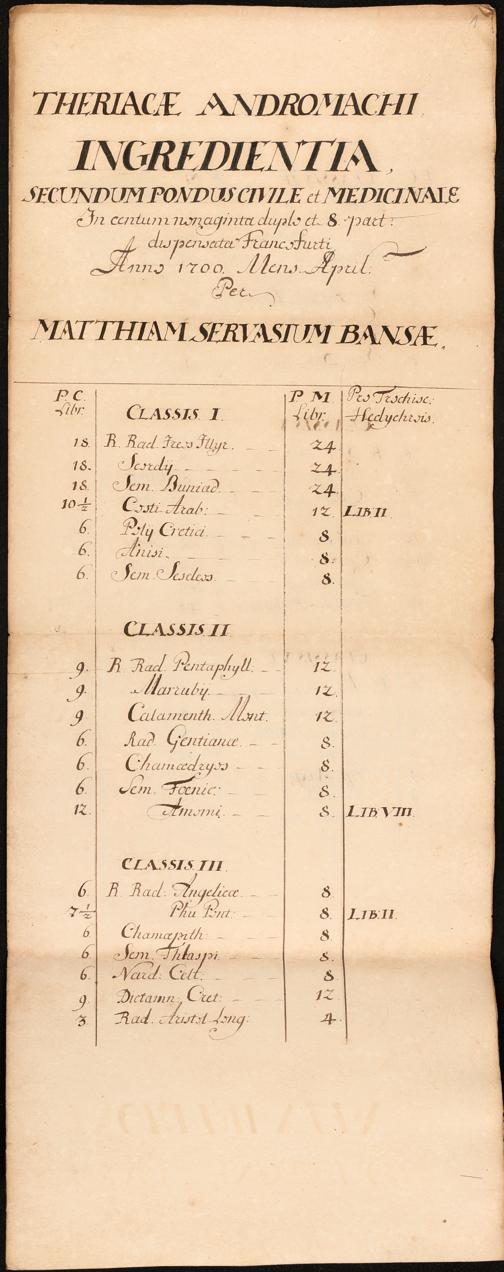 THERIACÆ ANDROMACHI
INGREDIENTIA,
SECUNDUM PONDUS CIVILE et MEDICINALE
In centum nonaginta duplo et 8 part:
dispensata Francofurti
Anno 1700. Mens. April.
Per
MATTHIAM SERVASIUM BANSÆ.
P C. Libr. CLASSIS I P M Libr. Pro Trochisc: Hedychrois.
18. R. Rad. Ireos Illyr. 24
18. Scordy 24
18. Sem. Buniad. 24
10 1/2 Costi Arab: 12 LIB II
6. Poly Cretici 8
6. Anisi. 8.
6. Sem. Seseleos 8.
CLASSIS II
9. R Rad. Pentaphyll. 12
9. Marruby. 12.
9. Calamenth. Mont. 12
6. Rad. Gentianæ 8.
6. Chamædryos 8.
6. Sem. Fœnic: 8.
12. Amomi. 8. LIB VIII
CLASSIS III
6. R. Rad. Angelicæ 8
7 1/2 Phu Pont: 8. LIB II.
6 Chamæpith: 8
6. Sem. Thlaspi 8.
6. Nard. Celt: 8
9. Dictamn. Cret: 12
3. Rad. Aristol. Long: 4